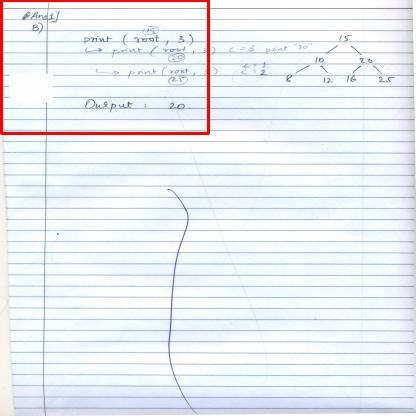 Ans 1]
B)
15
print ( root , 3 )
↳ print ( root , 3 ) c = 3 print "20"
20
↳ print ( root , 3 ) c = 2
25
Output : 20
15
10 20
8 12 16 25